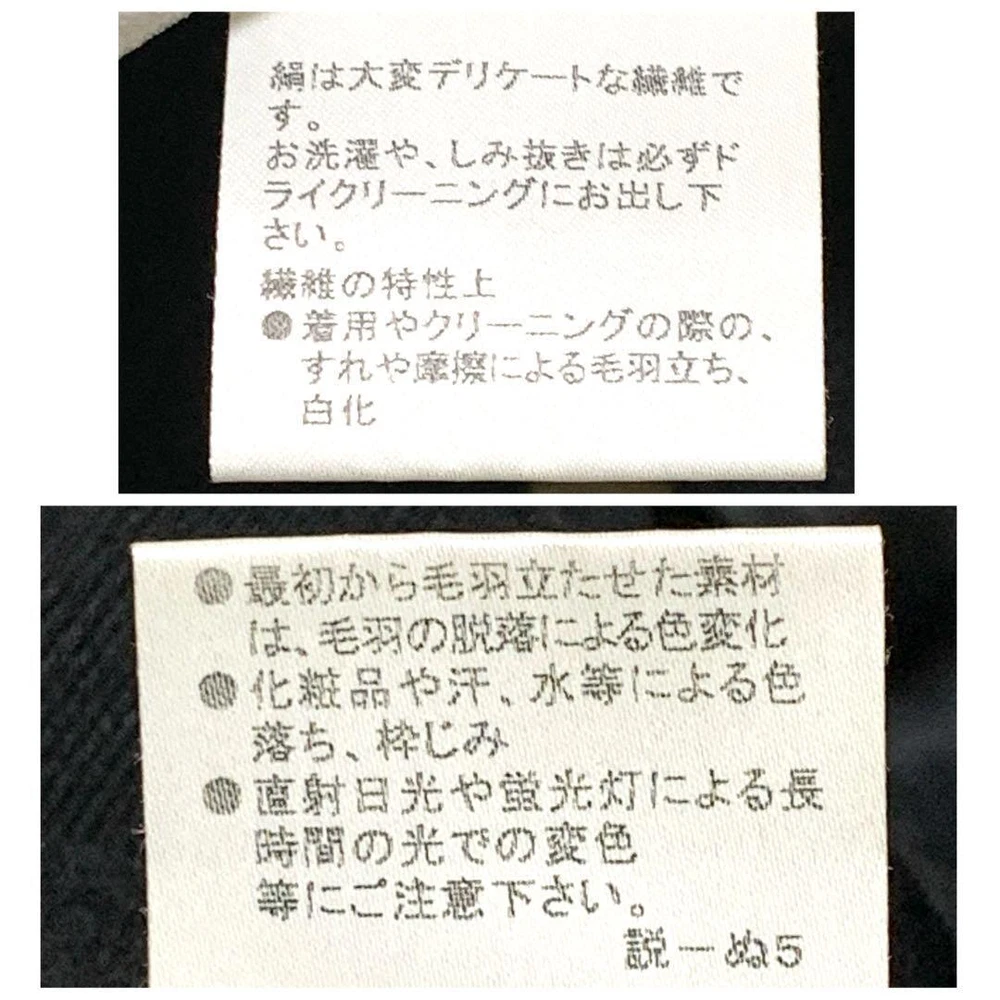 絹は大変デリケートな繊維で
す。
お洗濯や、しみ抜きは必ずド
ライクリーニングにお出し下
さい。
繊維の特性上
●着用やクリーニングの際の、
すれや摩擦による毛羽立ち、
白化
●最初から毛羽立たせた素材
は、毛羽の脱落による色変化
●化粧品や汗、水等による色
落ち、枠じみ
●直射日光や蛍光灯による長
時間の光での変色
等にご注意下さい。
説ーぬ5